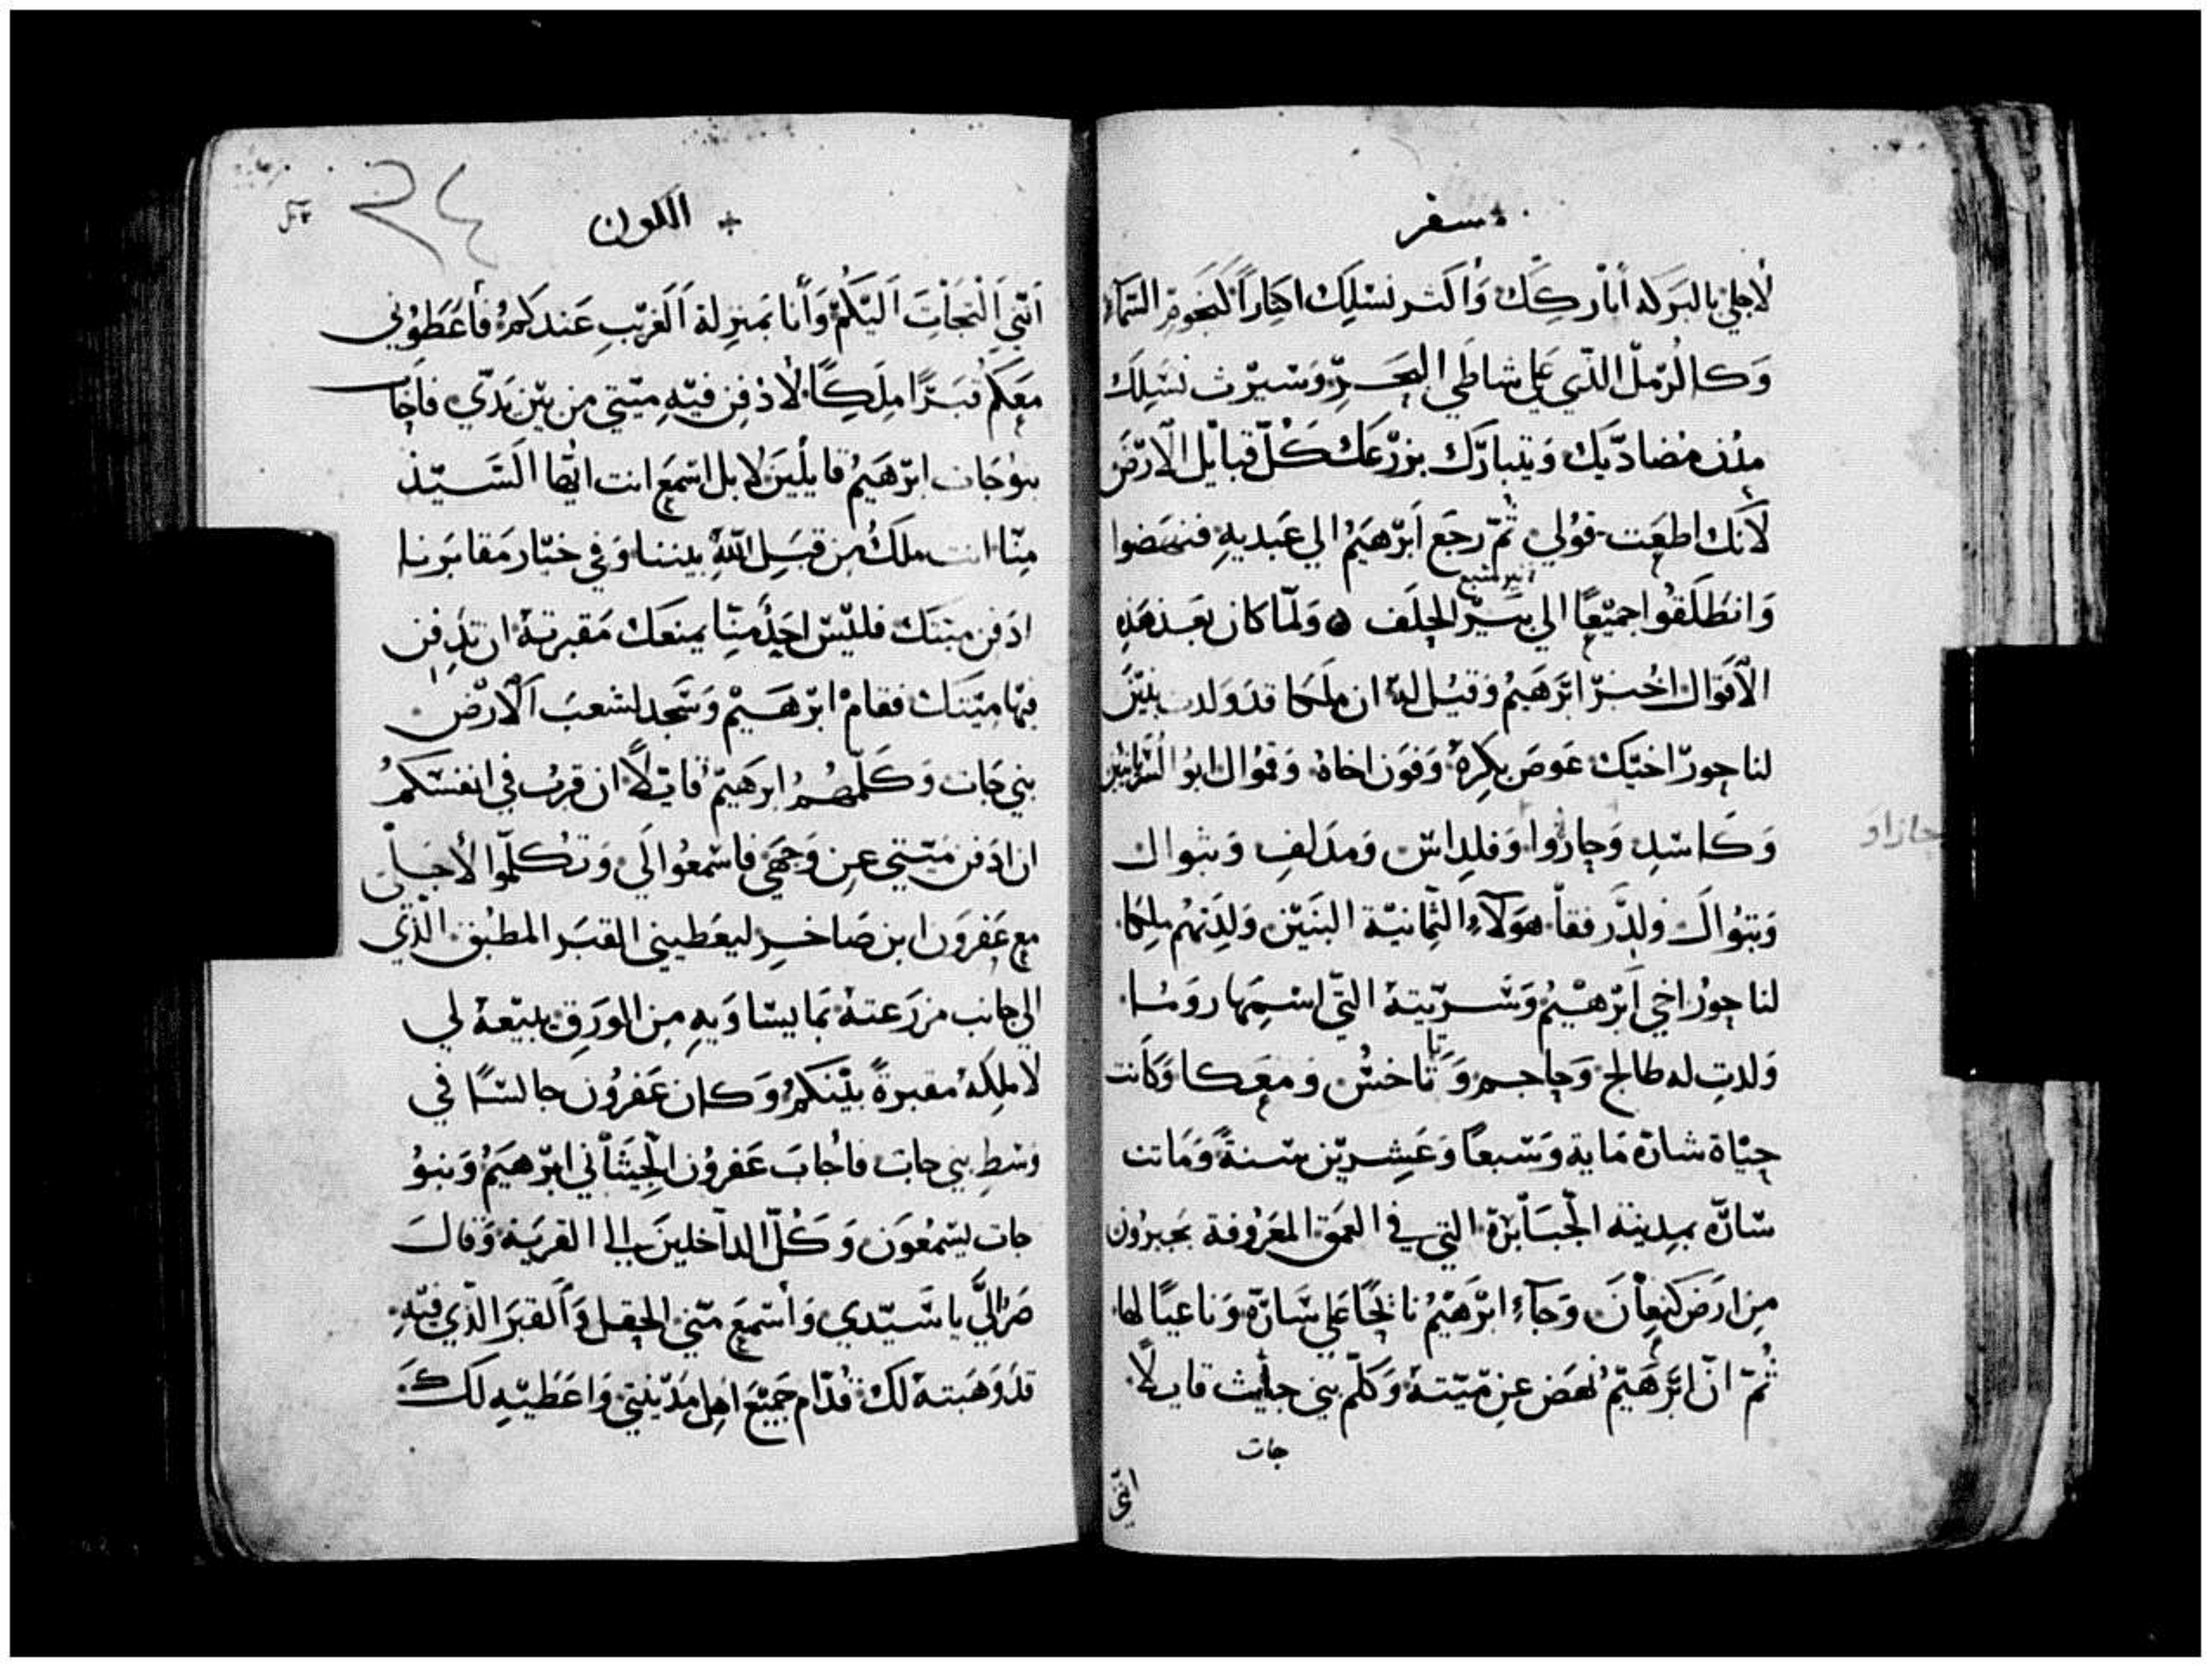 سفر
لاجلي بالبركه أباركك وأكثر نسلك اكثاراً كنجوم السماء
وكالرمل الذي علي شاطي البحر وسيرث نسلك
مدن مضاديك ويتبارك بزرعك كل قبايل الارض
لانك اطعت قولي ثم رجع ابرهيم الي عبديه فنهضوا
وانطلقوا جميعًا الي بير الحلف ولما كان بعد هذه
الاقوال اخبر ابرهيم وقيل له ان ملكا قد ولدت بنين
لناحور اخيك عوص بكره وفون اخاه وقموال ابو السريانيين
وكاسد وحازوا وفلداس ومدلف وبتوال
حازاو
وبتوال ولد رفقا هولاء الثمانية البنين ولدتهم ملكا
لناحور اخي ابرهيم وسريته التي اسمها روما
ولدت له طالح وجاحم وتاخش ومعكا وكانت
حياة ساره ماية وسبعا وعشرين سنة وماتت
ساره بمدينة الجبابرة التي في العمق المعروفة بحبرون
من ارض كنعان وجاء ابرهيم نائحًا علي ساره وناعيًا لها
ثم ان ابرهيم نهض عن ميتة وكلم بني حايث قايلاً
حات
اني
الكون
٢٤
انني التجات اليكم وأنا بمنزلة الغريب عندكم فأعطوني
معكم قبرًا ملكًا لادفن فيه ميتي من بين يدي فاجاب
بنو حات ابرهيم قايلين لا بل اسمع انت ايها السيد
منا انت ملك من قبل الله بيننا وفي خيار مقابرنا
ادفن ميتك فليس احد منا يمنعك مقبرته ان تدفن
فيها ميتك فقام ابرهيم وسجد لشعب الارض
بني حات وكلمهم ابرهيم قايلاً ان قرب في انفسكم
ان ادفن ميتي عن وجهي فاسمعوا لي وتكلموا لأجلي
مع عفرون ابن صاخر ليعطيني القبر المطبق الذي
الي جانب مزرعته بما يساويه من الورق يبيعه لي
لاملكه مقبرةً بينكم وكان عفرون جالسًا في
وسط بني حات فأجاب عفرون الحيثاني ابرهيم وبنو
حات يسمعون وكل الداخلين الي القرية وقال
صر الي يا سيدي وأسمع مني الحقل والقبر الذي فيه
قد وهبته لك قدام جميع اهل مدينتي واعطيه لك